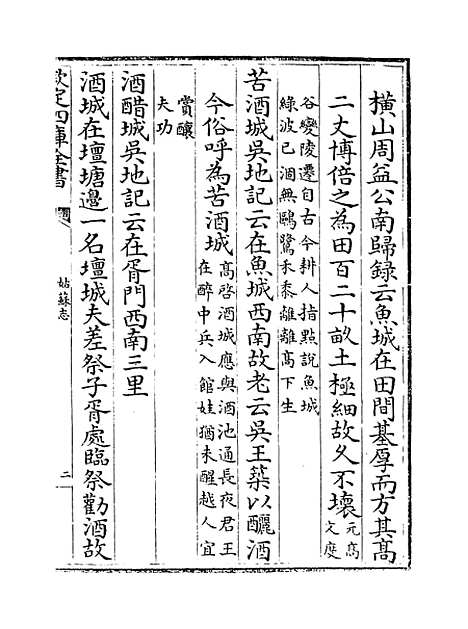 橫山周益公南歸録云魚城在田間基厚而方其髙
二丈博倍之為田百二十畝土極細故久不壊元髙
文度
谷變陵遷自古今耕人指點說魚城
綠波已涸無鷗鷺禾黍離離髙下生
苦酒城吳地記云在魚城西南故老云吳王築以釃酒
今俗呼為苦酒城髙啓酒城應與酒池通長夜君王
在醉中兵入館娃猶未醒越人宜
賞釀
夫功
酒醋城吳地記云在胥門西南三里
酒城在壇塘邉一名壇城夫差祭子胥處臨祭勸酒故
欽定四庫全書
姑蘇志
二